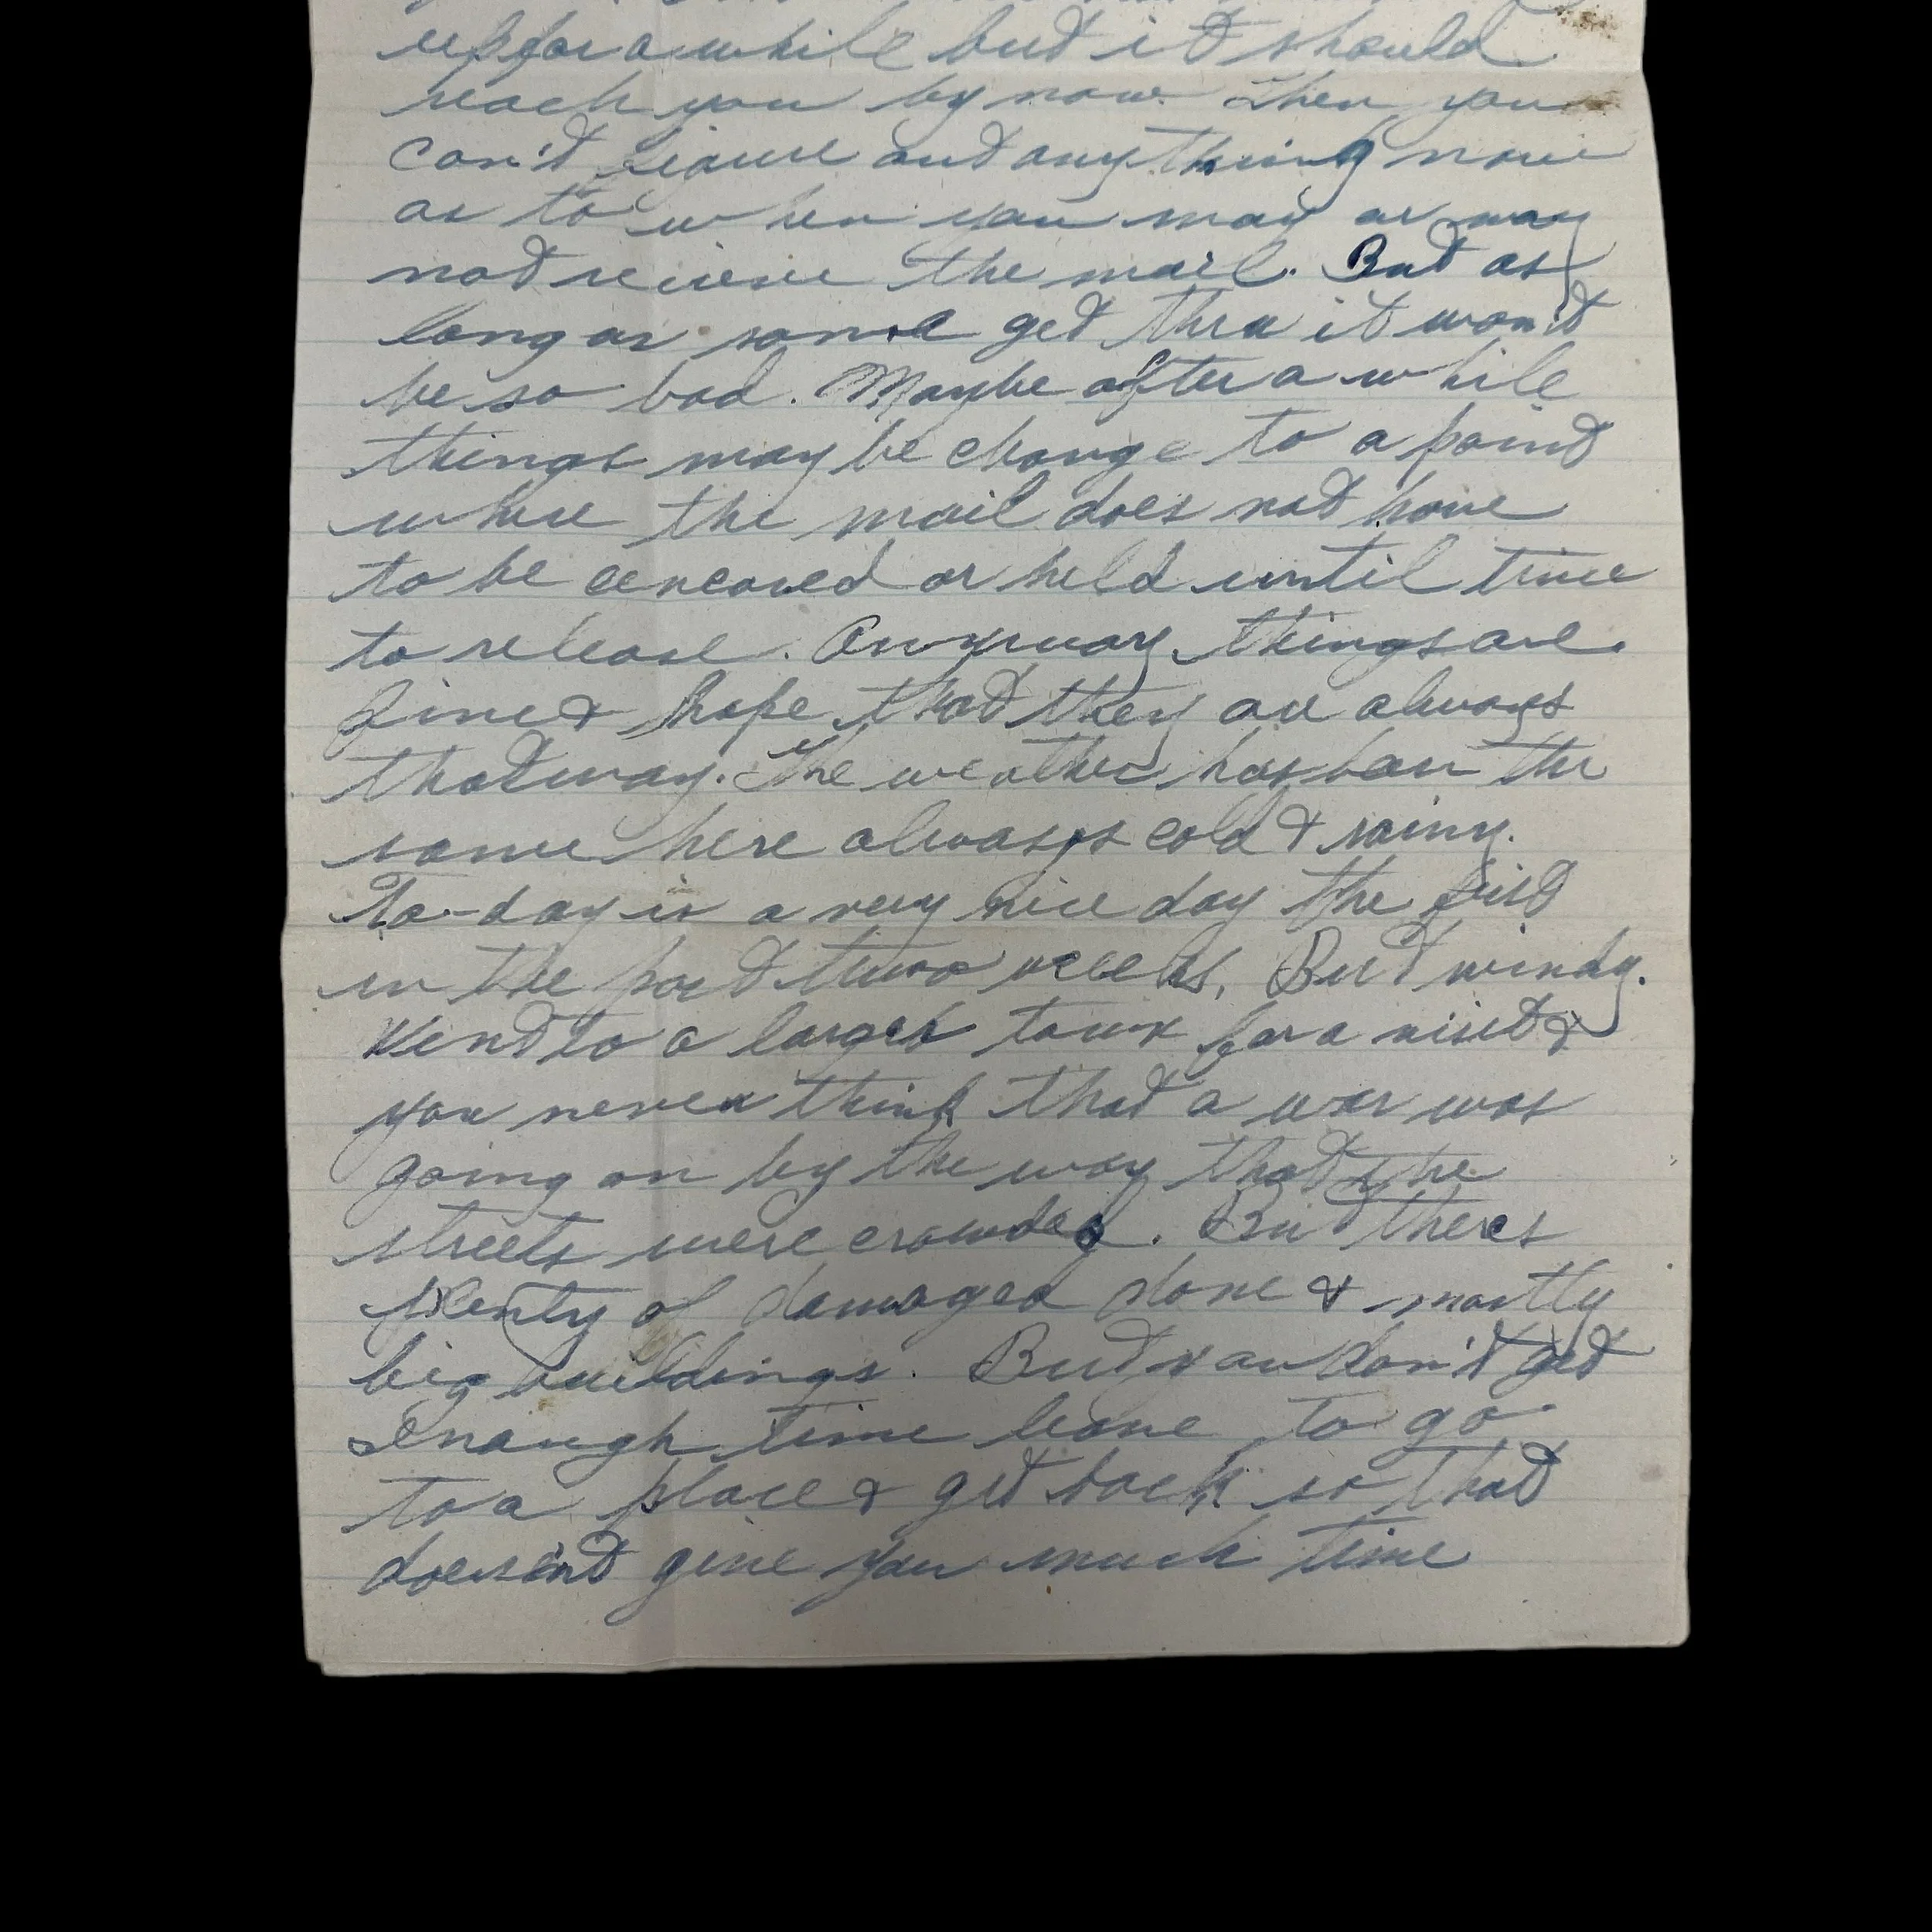 up for a while but it should
reach you by now. Then you
can't figure out anything now
as to when you may or may
not recieve the mail. But as
long as some get thru it won't
be so bad. Maybe after a while
things may be change to a point
where the mail does not have
to be cencored or held until time
to release. Anyway things are
fine & hope that they are always
that way. The weather has been the
same here always cold & rainy.
To-day is a very nice day the first
in the past two weeks. But windy.
Went to a larger town for a visit &
you never think that a war was
going on by the way that the
streets were crowded. But theres
plenty of damaged done & mostly
big buildings. But you don't get
enough time leave to go
to a place & get back so that
doesn't give you much time